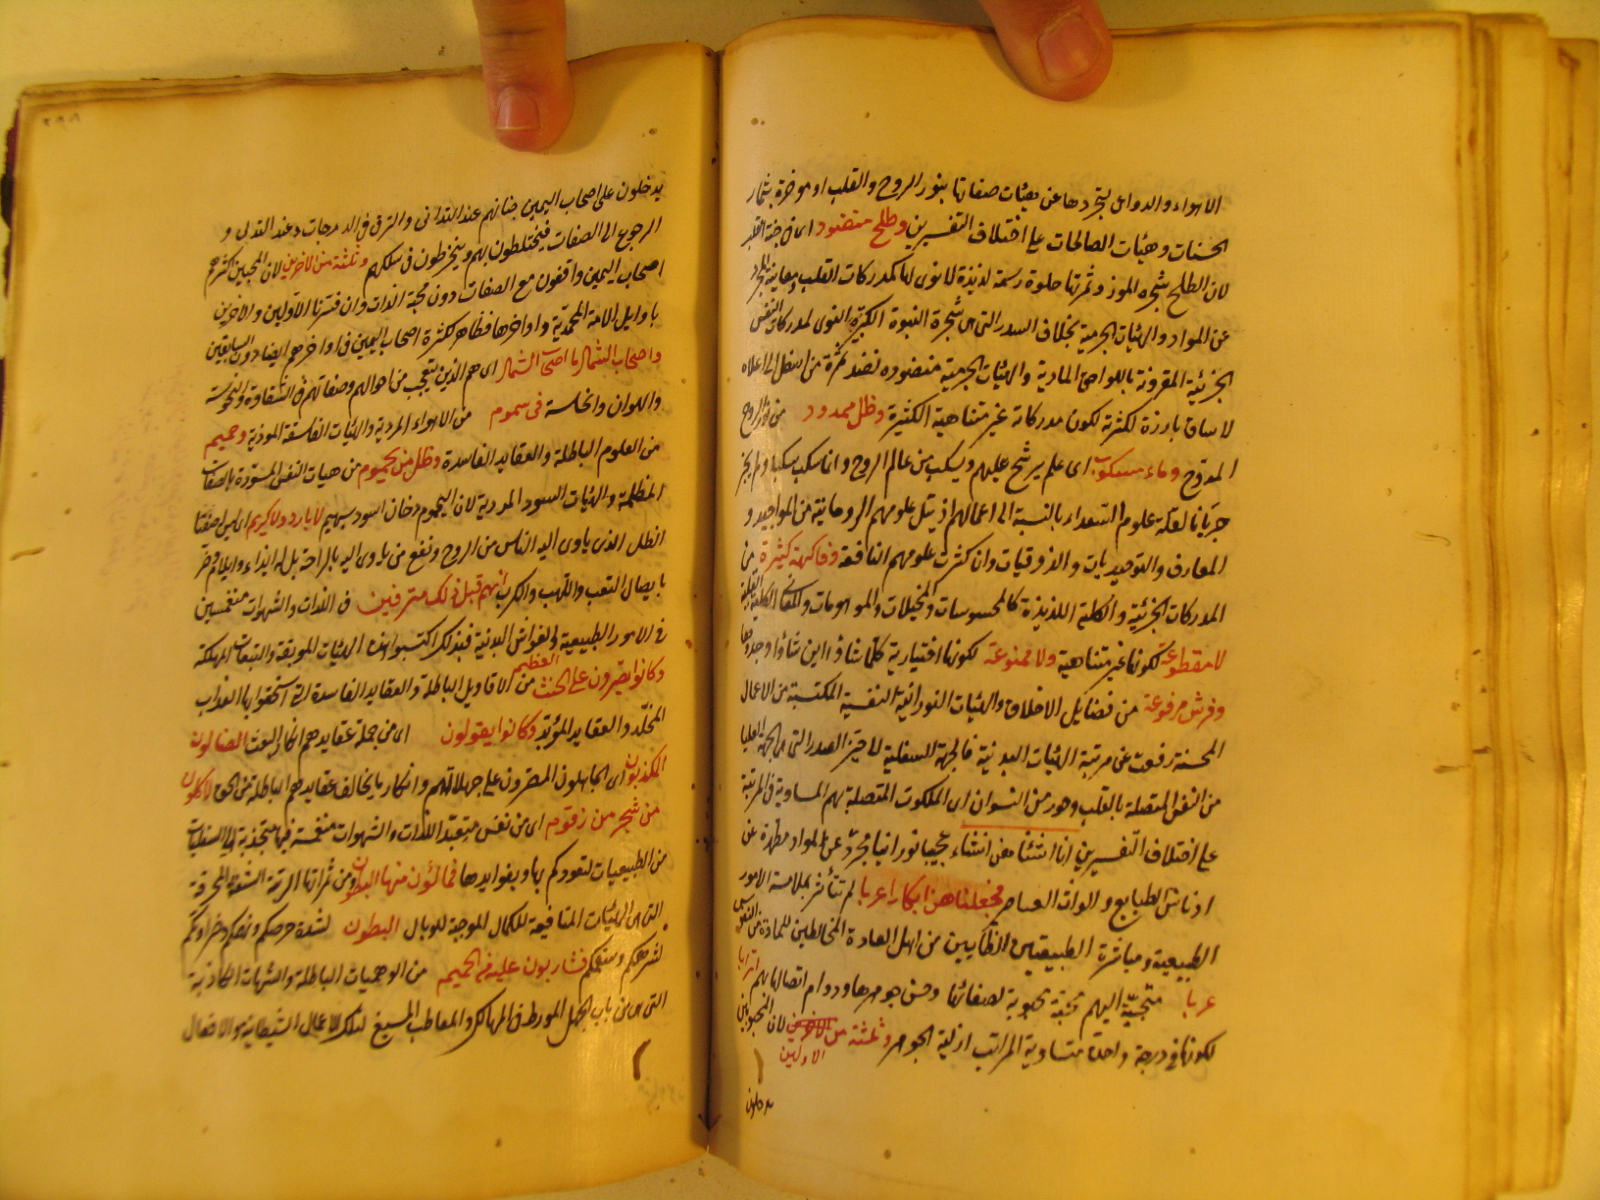 الاهواء والدواعى لتجردها عن هيئات صفاتها بنور الروح والقلب او موقرة بثمار
الحسنات وهيئات الصالحات على اختلاف التفسيرين وطلح منضود اى فى جنة القلب
لان الطلح شجرة الموز وثمرتها حلوة دسمة لذيذة لا نوى لها كمدركات القلب
عن المواد والهيئات الجرمية بخلاف السدر التى هى شجرة النبوة الكثيرة النوى لمدركات النفس
الجزئية المقرونة باللواحق المادية والهيئات الجرمية منضودة نضد ثمرة من اسفل الى اعلاه
لا ساق بارزة لكثرته لكون مدركاته غير متناهية الكثيرة وظل ممدود من نور الروح
المروح وماء مسكوب اى علم يرشح عليهم ويسكب من عالم الروح وانما سكب سكبا ولم يجر
جريانا لقلة علوم السعداء بالنسبة الى اعمالهم اذ يقل علومهم الروحانية من المواجيد و
المعارف والتوحيديات والذوقيات وان كثرت علومهم النافعة وفاكهة كثيرة من
المدركات الجزئية والكلية اللذيذة كالمحسوسات والمخيلات والموهومات والمعانى الكلية القلبية
لا مقطوعة لكونها غير متناهية ولا ممنوعة لكونها اختيارية كلما شاؤا اين شاؤا وجدوها
وفرش مرفوعة من فضايل الاخلاق والهيئات النورانية النفسية المكتسبة من الاعمال
الحسنة رفعت عن مرتبة الهيئات البدنية والجهة السفلية الى حيز الصدر التى هى الجهة العليا
من النفس المتصلة بالقلب وحور من النسوان اى الملكوت المتصلة بهم المساوية فى المرتبة
على اختلاف التفسيرين انا انشئناهن انشاء عجيبا نورانيا مجردا عن المواد مطهرة عن
ادناس الطبايع والواث العناصر فجعلناهن ابكارا عربا لم تتأثر بملامسة الامور
الطبيعية ومباشرة الطبيعيين الظاهريين من اهل العادة المخالطين للمادة من النفوس
عربا متحببة اليهم محبة محبوبة لصفائها وحسن جوهرها ودوام اتصالها بهم اترابا
لكونها فى درجة واحدة متساوية المراتب ازلية الجوهر وثلثة من الاخرين لان المحبوبين
الاولين
يدخلون
يدخلون على اصحاب اليمين جنانهم عند التدانى والترقى فى الدرجات وعند التدلى و
الرجوع الى الصفات فيختلطون بهم وينخرطون فى سلكهم وثلثة من الاخرين لان المحبين اكثرهم
اصحاب اليمين واقفون مع الصفات دون محبة الذات وان فسرنا الاولين والاخرين
باوايل الامة المحمدية واواخرها فظاهر لكثرة اصحاب اليمين فى اواخرهم ايضا دون السابقين
واصحاب الشمال ما اصحاب الشمال اى هم الذين يتعجب من احوالهم وصفاتهم فى الشقاوة والنحوسة
والهوان والخسة فى سموم من الاهواء المردية والهيئات الفاسقة الموذية وحميم
من العلوم الباطلة والعقايد الفاسدة وظل من يحموم من هيات النفس المسودة بالصفات
المظلمة والهيئات السود المردية لان اليحموم دخان اسود بهيم لا بارد ولا كريم اى ليس له صفتا
الظل الذى ياوى اليه الناس من الروح ونفع من ياوى اليه بالراحة بل له ايذاء وايلام وضر
بايصال التعب واللهب والكرب انهم كانوا قبل ذلك مترفين فى اللذات والشهوات منغمسين
فى الامور الطبيعية والغواشى البدنية فبذلك اكتسبوا هذه الهيئات الموبقة والتبعات المهلكة
وكانوا يصرون على الحنث العظيم من الاقاويل الباطلة والعقايد الفاسدة التى استحقوا بها العذاب
المخلد والعقاب المؤبد وكانوا يقولون اى من جملة عقايدهم انكار البعث الضالون
المكذبون اى الجاهلون المصرون على جهلالاتهم وانكار ما يخالف عقايدهم الباطلة من الحق لاكلون
من شجر من زقوم اى من نفس متعبدة اللذات والشهوات منغمسة فيها منجذبة الى السفليات
من الطبيعيات لتعودكم بها وبفوايدها فمالؤن منها البطون ومن ثمراتها الردية البشعة المحرقة
التى هى الهيئات المنافية للكمال الموجبة للوبال البطون لشدة حرصكم ونهمكم وضراوتكم
لشرهكم وسقمكم فشاربون عليه من الحميم من الوهميات الباطلة والشبهات الكاذبة
التى هى من باب الجهل المورط فى المهالك والمعاطب المسيغ لتلك الاعمال الشيطانية والافعال